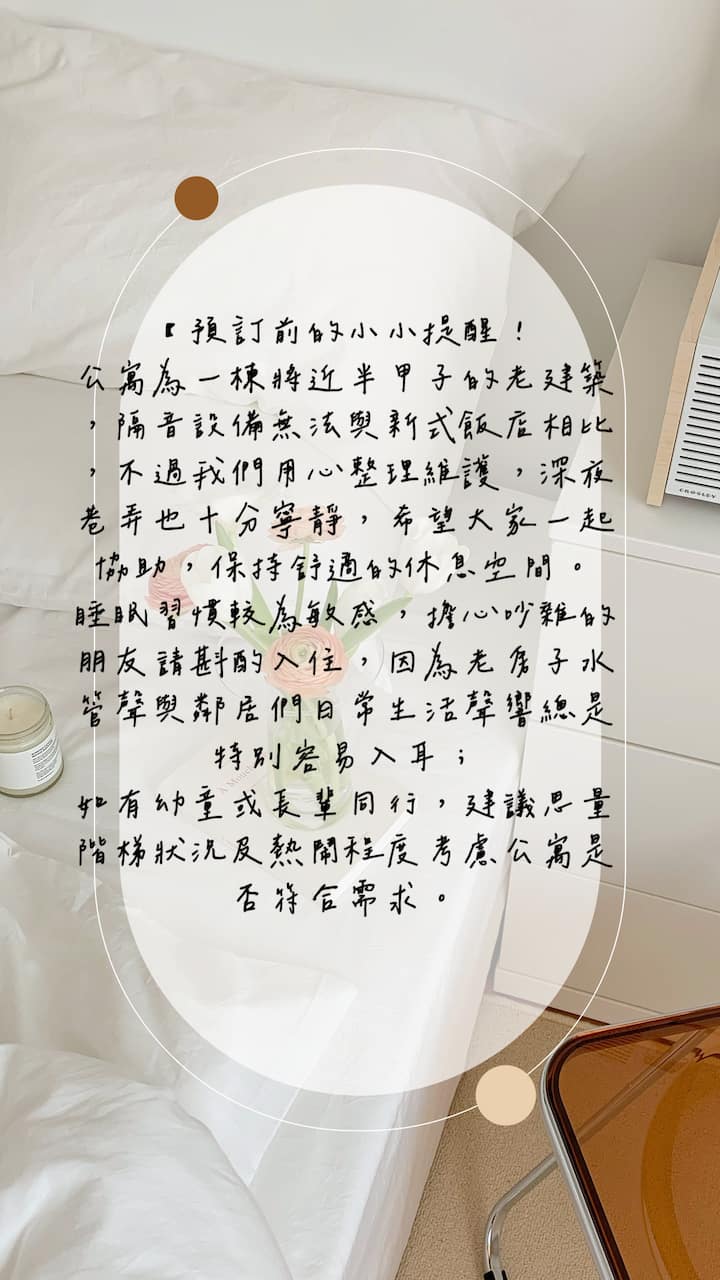 『預訂前的小小提醒！
公寓為一棟將近半甲子的老建築
，隔音設備無法與新式飯店相比
，不過我們用心整理維護，深夜
巷弄也十分寧靜，希望大家一起
協助，保持舒適的休息空間。
睡眠習慣較為敏感，擔心吵雜的
朋友請斟酌入住，因為老房子水
管聲與鄰居們日常生活聲響總是
特別容易入耳；
如有幼童或長輩同行，建議思量
階梯狀況及熱鬧程度考慮公寓是
否符合需求。
CROSLEY